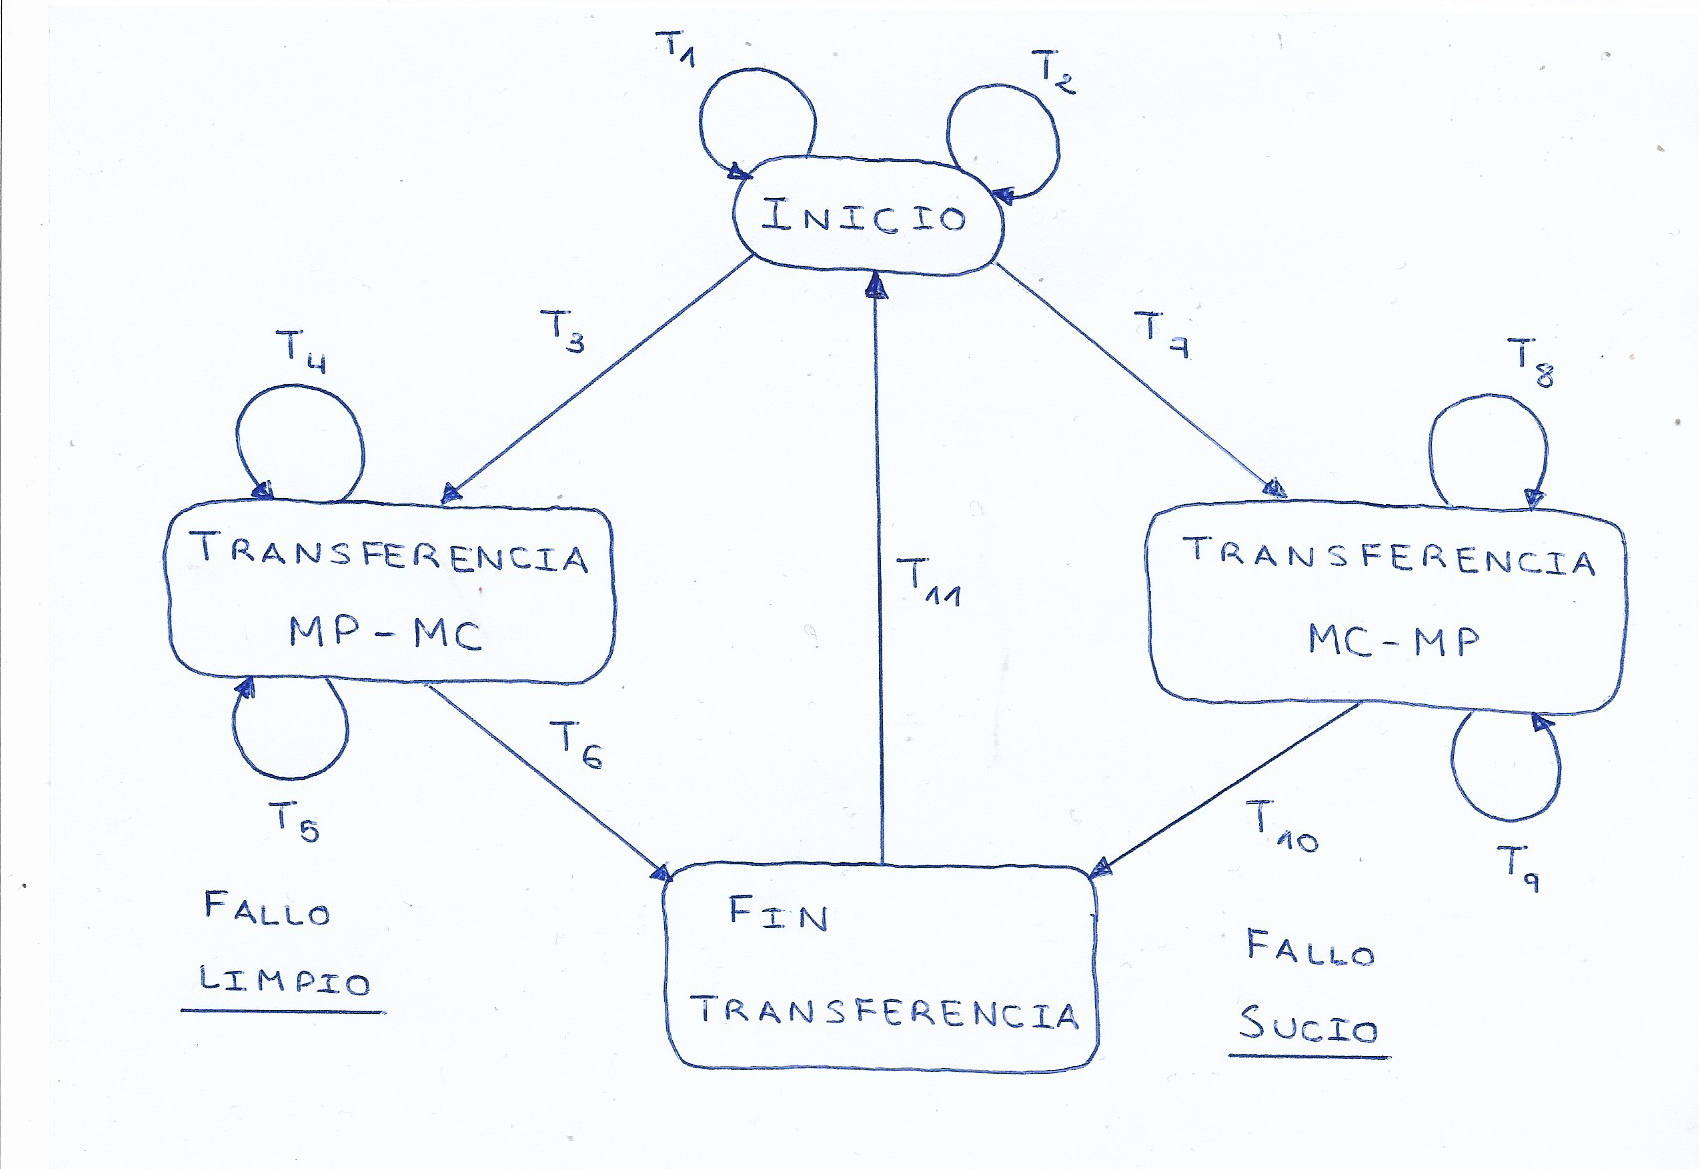 T1
T2
INICIO
T3
T7
T4
T8
TRANSFERENCIA
MP-MC
TRANSFERENCIA
MC-MP
T11
T5
T6
T10
T9
FALLO
LIMPIO
FIN
TRANSFERENCIA
FALLO
SUCIO